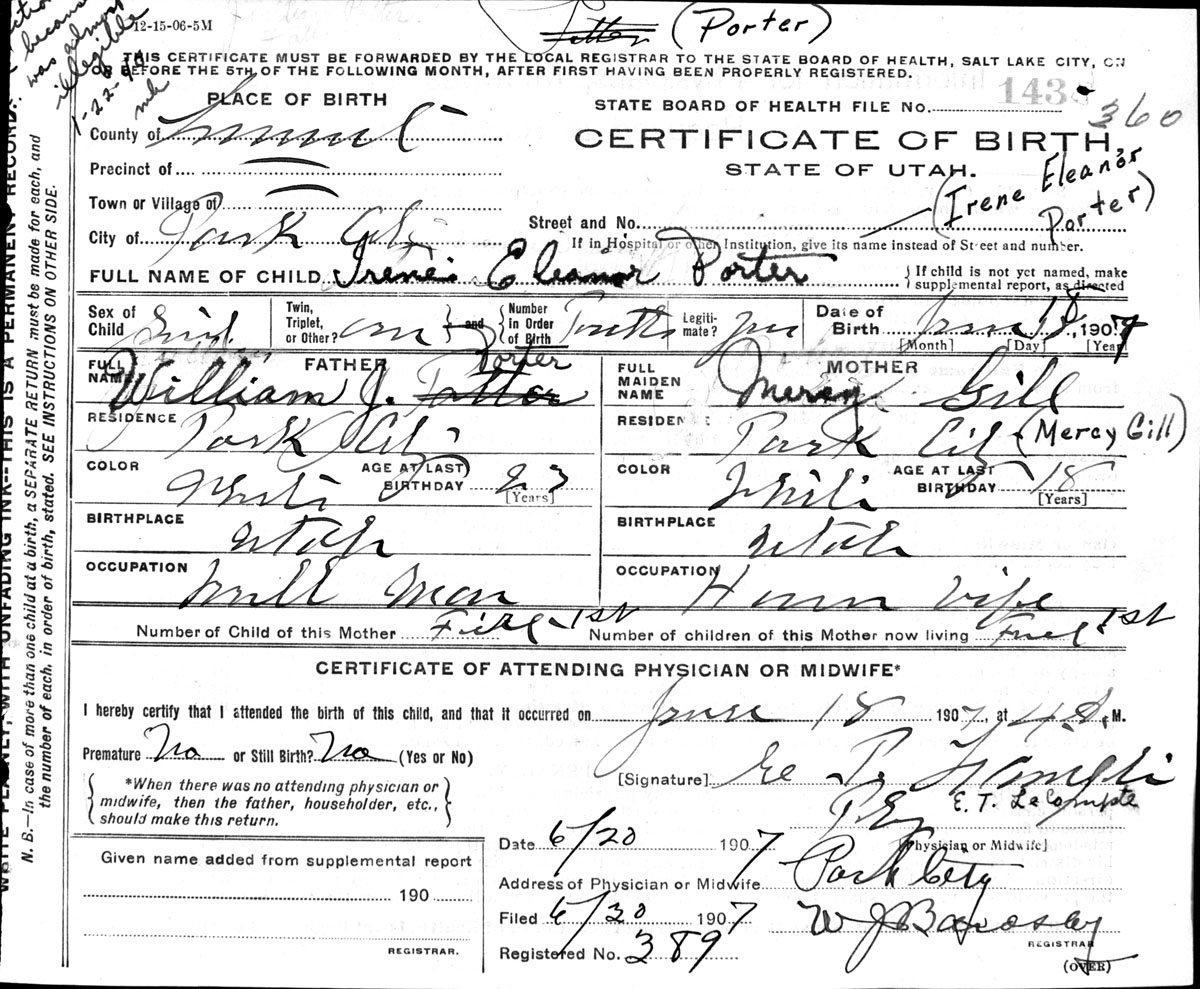 12-15-06-5M
(Porter)
THIS CERTIFICATE MUST BE FORWARDED BY THE LOCAL REGISTRAR TO THE STATE BOARD OF HEALTH, SALT LAKE CITY, ON
OR BEFORE THE 5TH OF THE FOLLOWING MONTH, AFTER FIRST HAVING BEEN PROPERLY REGISTERED.
was almost
illegible
PLACE OF BIRTH
STATE BOARD OF HEALTH FILE NO. 143
360
County of Summit
CERTIFICATE OF BIRTH,
Precinct of
STATE OF UTAH.
(Irene Eleanor
Porter)
Town or Village of
Street and No.
City of Park City
If in Hospital or other Institution, give its name instead of Street and number.
FULL NAME OF CHILD Irene Eleanor Porter
If child is not yet named, make
supplemental report, as directed
Sex of Child Girl
Twin, Triplet, or Other?
and
Number in Order of Birth
Legiti-mate? yes
Date of Birth June 18, 1907
[Month] [Day] [Year]
FATHER
MOTHER
FULL NAME William J. Porter
FULL MAIDEN NAME Mercy Gill
RESIDENCE Park City
RESIDENCE Park City (Mercy Gill)
COLOR White AGE AT LAST BIRTHDAY 23 [Years]
COLOR White AGE AT LAST BIRTHDAY 18 [Years]
BIRTHPLACE Utah
BIRTHPLACE Utah
OCCUPATION Mill Man
OCCUPATION House Wife
Number of Child of this Mother First 1st
Number of children of this Mother now living First 1st
CERTIFICATE OF ATTENDING PHYSICIAN OR MIDWIFE*
I hereby certify that I attended the birth of this child, and that it occurred on June 18 1907, at 4 A. M.
Premature No or Still Birth? No (Yes or No)
*When there was no attending physician or
midwife, then the father, householder, etc.,
should make this return.
[Signature]
E. T. LeCompte
[Physician or Midwife]
Date 6/20 1907
Address of Physician or Midwife Park City
Filed 6/20 1907
REGISTRAR
Registered No. 389
(OVER)
Given name added from supplemental report
190
REGISTRAR.
WRITE PLAINLY, WITH UNFADING INK--THIS IS A PERMANENT RECORD.
N. B.—In case of more than one child at a birth, a SEPARATE RETURN must be made for each, and
the number of each, in order of birth, stated. SEE INSTRUCTIONS ON OTHER SIDE.